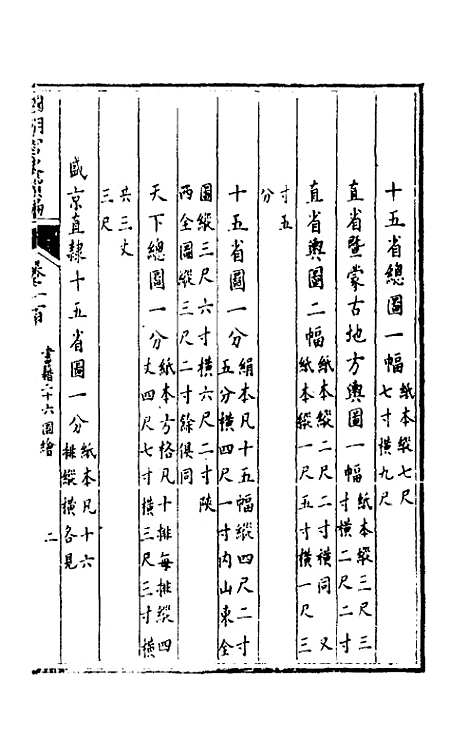 十五省總圖一幅紙本縱七尺七寸橫九尺
直省暨蒙古地方輿圖一幅紙本縱三尺三寸橫二尺二寸
直省輿圖二幅紙本縱二尺二寸橫同又紙本縱一尺五寸橫一尺三
寸五分
十五省圖一分絹本凡十五幅縱四尺二寸五分橫四尺一寸内山東全
圖縱三尺六寸橫六尺二寸陝西全圖縱三尺二寸餘俱同
天下總圖一分紙本方格凡十排每排縱四丈四尺七寸橫三尺三寸橫
共三丈三尺
盛京直隸十五省圖一分紙本凡十六排縱橫各見
國朝宮史續編
卷一百
書籍二十六圖繪
二